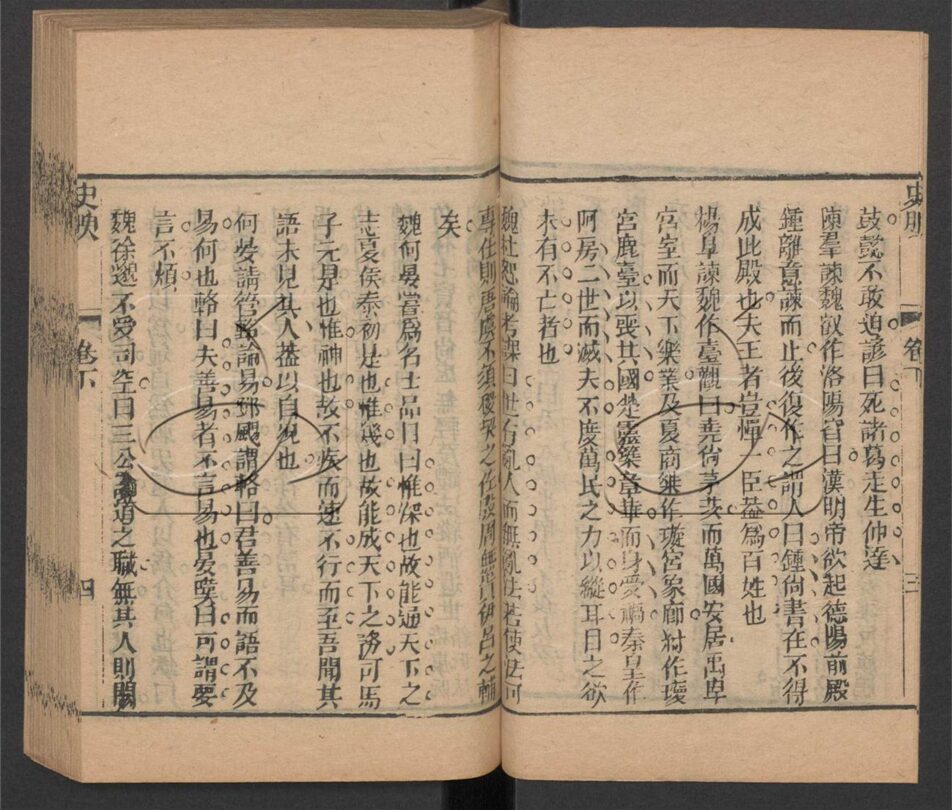 鼓懿不敢迫諺曰死諸葛走生仲達
陳羣諫魏叡作洛陽宮曰漢明帝欲起德陽前殿
鍾離意諫而止後復作之謂人曰鍾尚書在不得
成此殿也夫王者豈憚一臣葢爲百姓也
楊阜諫魏作臺觀曰堯尚茅茨而萬國安居禹卑
宮室而天下樂業及夏商桀作璇宮象廊紂作瓊
宮鹿臺以喪其國楚靈築章華而身受禍秦皇作
阿房二世而滅夫不度萬民之力以縱耳目之欲
未有不亡者也
魏杜恕論考課曰世有亂人而無亂法若使法可
專任則唐虞不須稷契之佐殷周無貴伊呂之輔
矣
魏何晏嘗爲名士品目曰惟深也故能通天下之
志夏侯泰初是也惟幾也故能成天下之務司馬
子元是也惟神也故不疾而速不行而至吾聞其
語未見其人葢以自况也
何晏請管輅論易鄧颺謂輅曰君善易而語不及
易何也輅曰夫善易者不言易也晏曰可謂要
言不煩
魏徐邈不受司空曰三公論道之職無其人則闕
卷下
三
卷下
四